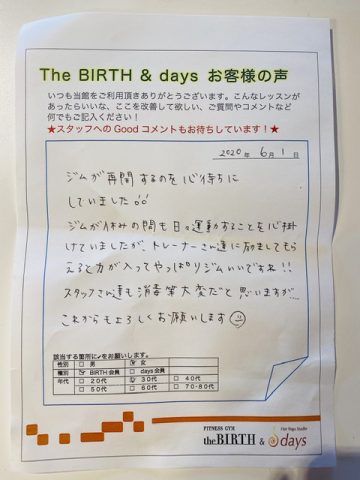 The BIRTH & days お客様の声
いつも当館をご利用頂きありがとうございます。こんなレッスンが
あったらいいな、ここを改善して欲しい、ご質問やコメントなど
何でもご記入ください！
★スタッフへの Good コメントもお待ちしています！★
2020年 6月 1日
ジムが再開するのを心待ちに
していました!!
ジムが休みの間も日々運動することを心掛
けていましたが、トレーナーさん達に励ましてもら
えると力が入ってやっぱりジムいいですね!!
スタッフさん達も消毒等大変だと思いますが…
これからもよろしくお願いします
該当する箇所に✓をお願いします。
性別 □ 男 ☑ 女
種別 ☑ BIRTH会員 □ days会員
年代 □ 20代 ☑ 30代 □ 40代
□ 50代 □ 60代 □ 70-80代
FITNESS GYM Hot Yoga Studio
the BIRTH & days